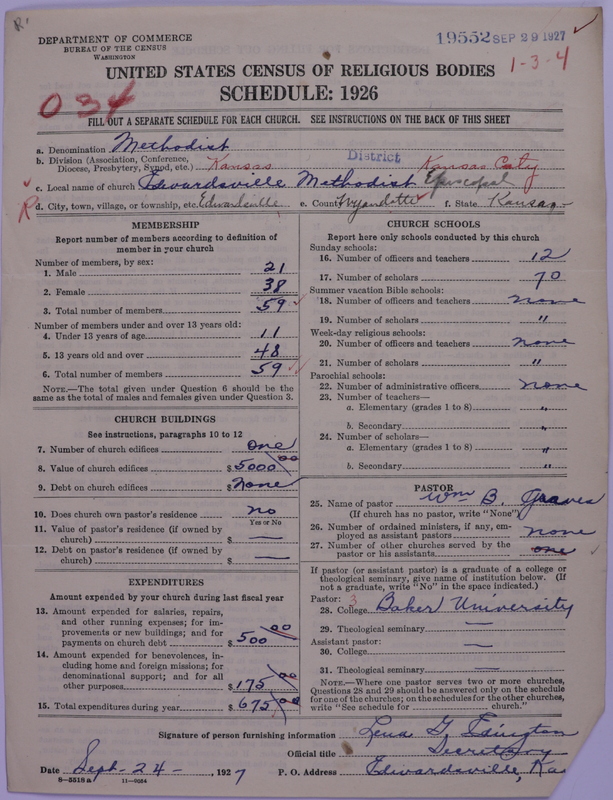 DEPARTMENT OF COMMERCE
BUREAU OF THE CENSUS
WASHINGTON
19552 SEP 29 1927
1-3-4
UNITED STATES CENSUS OF RELIGIOUS BODIES
SCHEDULE: 1926
034
FILL OUT A SEPARATE SCHEDULE FOR EACH CHURCH. SEE INSTRUCTIONS ON THE BACK OF THIS SHEET
a. Denomination Methodist
b. Division (Association, Conference, Diocese, Presbytery, Synod, etc.) Kansas District Kansas City
c. Local name of church Edwardsville Methodist Episcopal
R d. City, town, village, or township, etc. Edwardsville e. County Wyandotte f. State Kansas
MEMBERSHIP
Report number of members according to definition of
member in your church
Number of members, by sex:
1. Male 21
2. Female 38
3. Total number of members 59
Number of members under and over 13 years old:
4. Under 13 years of age 11
5. 13 years old and over 48
6. Total number of members 59
NOTE.—The total given under Question 6 should be
same as the total of males and females given under Question 3.
CHURCH BUILDINGS
See instructions, paragraphs 10 to 12
7. Number of church edifices one
8. Value of church edifices $5000 00
9. Debt on church edifices $None
10. Does church own pastor's residence? no
Yes or No
11. Value of pastor's residence (if owned by
church) $ —
12. Debt on pastor's residence (if owned by
church) $ —
EXPENDITURES
Amount expended by church during last fiscal year
13. Amount expended for salaries, repairs,
and other running expenses; for im-
provements or new buildings; and for
payments on church debt $500 00
14. Amount expended for benevolences, in-
cluding home and foreign missions; for
denominational support; and for all
other purposes $175 00
15. Total expenditures during year $675 00
CHURCH SCHOOLS
Report here only schools conducted by this church
Sunday schools:
16. Number of officers and teachers 12
17. Number of scholars 70
Summer vacation Bible schools:
18. Number of officers and teachers none
19. Number of scholars "
Week-day religious schools:
20. Number of officers and teachers none
21. Number of scholars "
Parochial schools:
22. Number of administrative officers none
23. Number of teachers—
a. Elementary (grades 1 to 8) "
b. Secondary "
24. Number of scholars—
a. Elementary (grades 1 to 8) "
b. Secondary "
PASTOR
25. Name of pastor Wm B. Graves
(If church has no pastor, write "None")
26. Number of ordained ministers, if any, em-
ployed as assistant pastors none
27. Number of other churches served by the
pastor or his assistants one
If pastor (or assistant pastor) is a graduate of a college or
theological seminary, give name of institution below. (If
not a graduate, write "No" in the space indicated.)
Pastor: 3
28. College Baker University
29. Theological seminary —
Assistant pastor:
30. College —
31. Theological seminary —
NOTE.—Where one pastor serves two or more churches,
Questions 28 and 29 should be answered only on the schedule
for one of the churches; on the schedules for the other churches,
write "See schedule for church."
Signature of person furnishing information Lena G.
Official title Secretary
Date Sept-24-, 1927 P. O. Address Edwardsville, Ka
8-5518a 11-9054